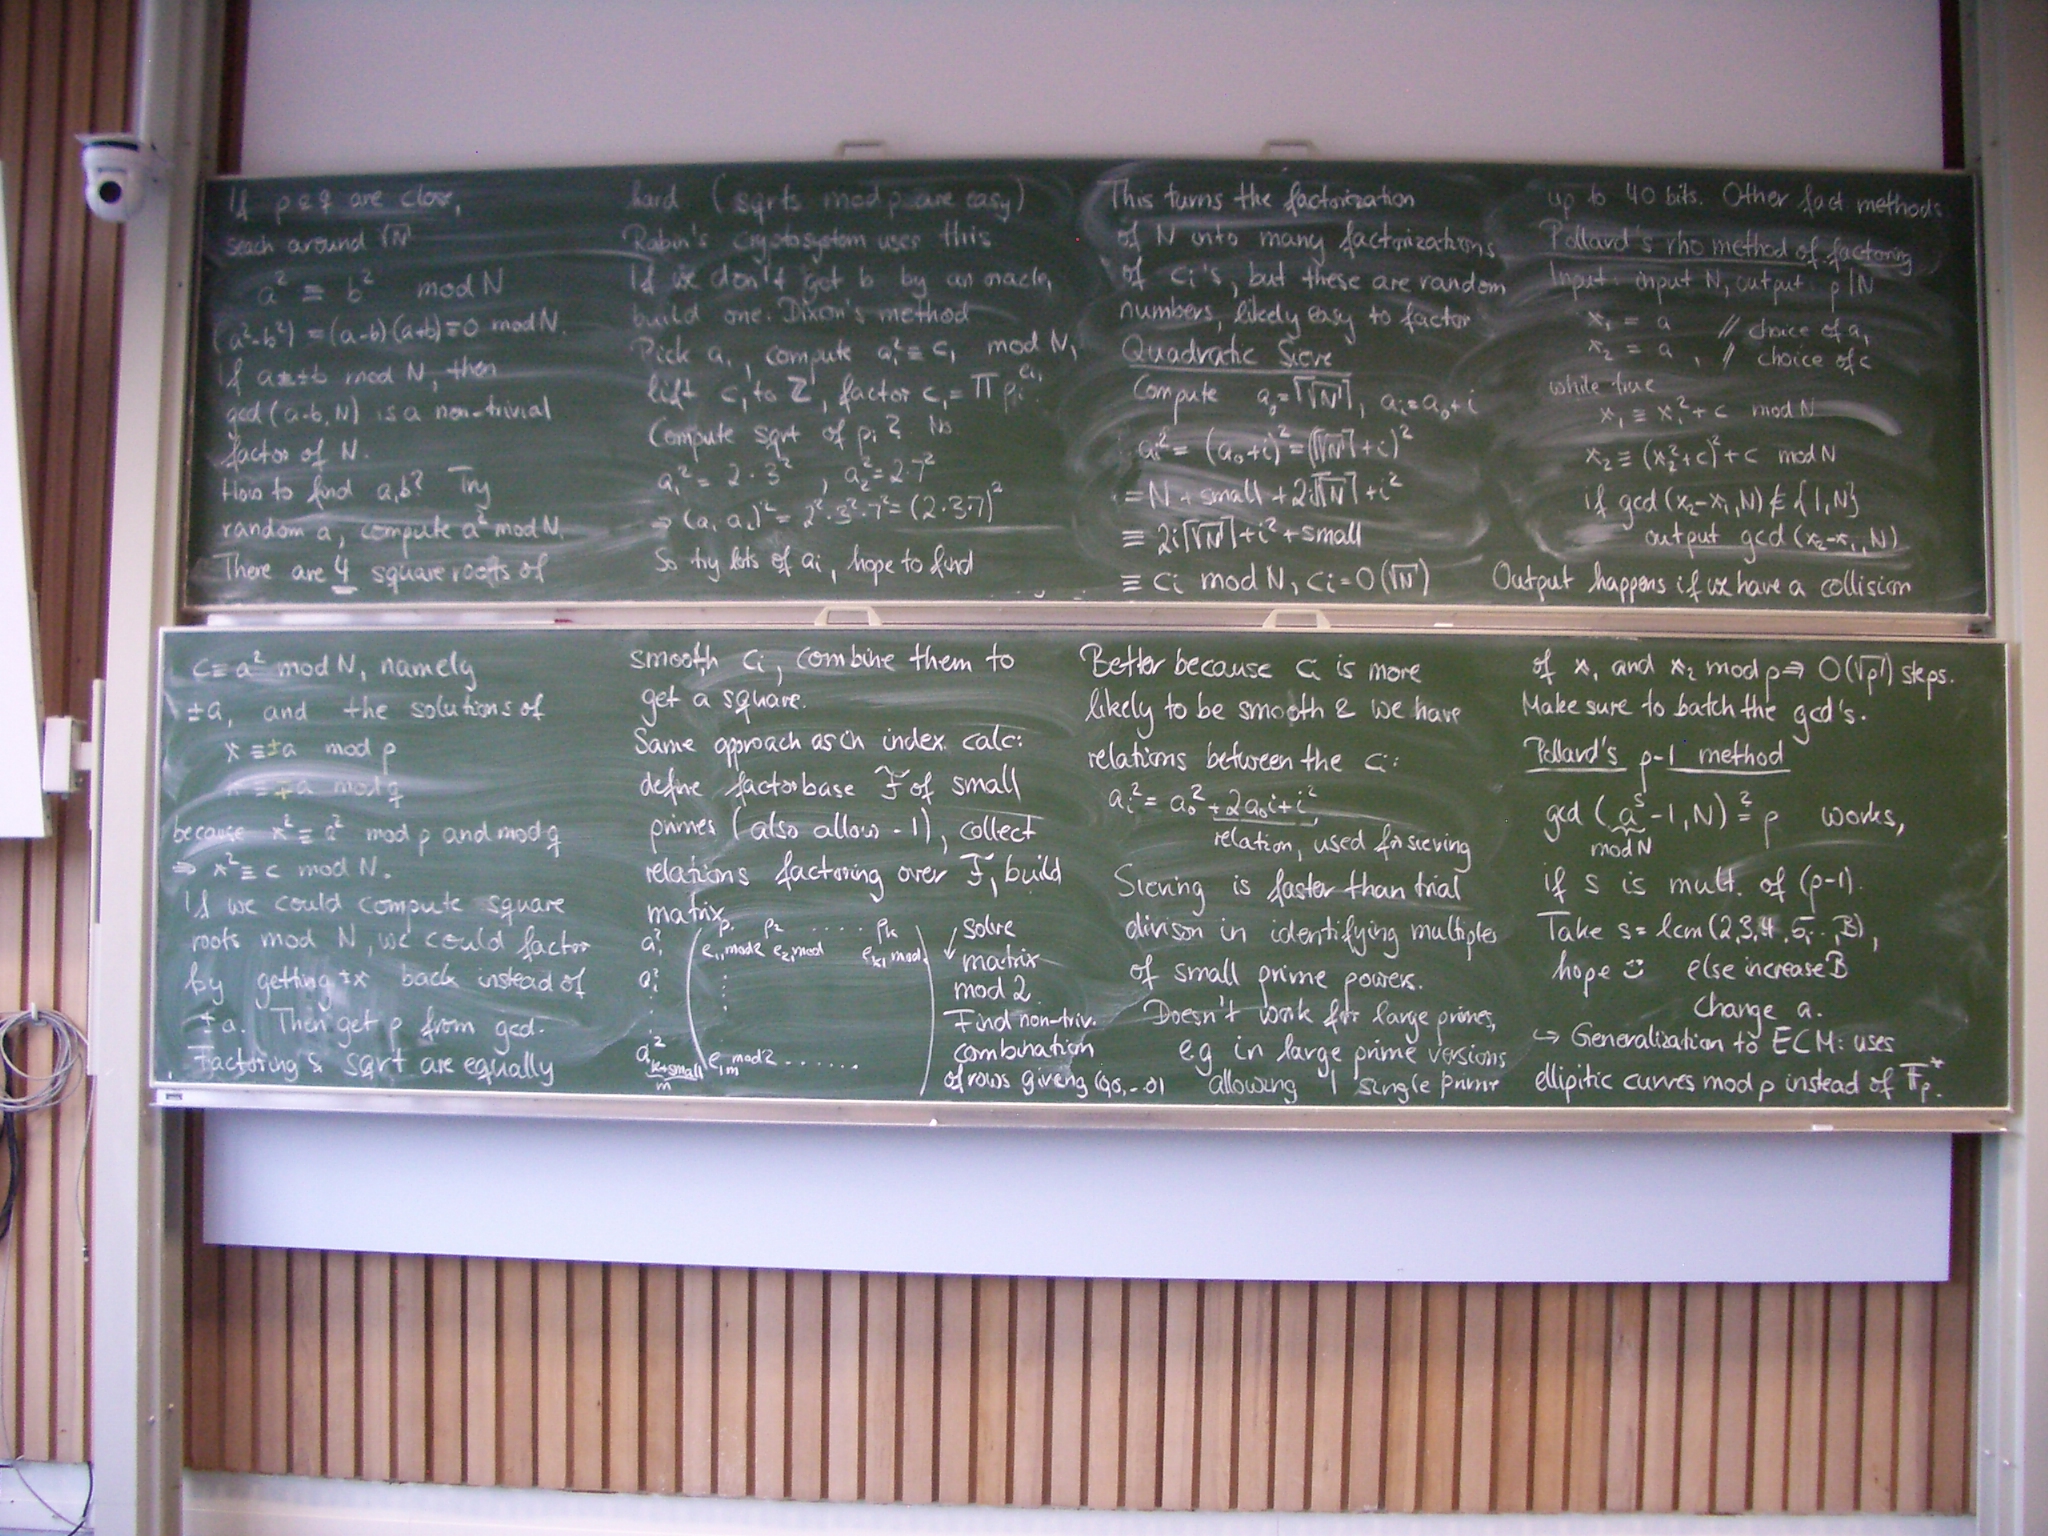 If p & q are close,
seach around √N
a² ≡ b² mod N
(a²-b²) = (a-b)(a+b) ≡ 0 mod N.
If a≢±b mod N, then
gcd(a-b, N) is a non-trivial
factor of N.
How to find a,b? Try
random a, compute a² mod N.
There are 4 square roots of
c≡ a² mod N, namely
±a, and the solutions of
x ≡ ±a mod p
x ≡ ∓a mod q
because x² ≡ a² mod p and mod q
⇒ x² ≡ c mod N.
If we could compute square
roots mod N, we could factor
by getting ±x back instead of
±a. Then get p from gcd.
Factoring & sqrt are equally
hard (sqrts mod p are easy)
Rabin's cryptosystem uses this
If we don't get b by an oracle,
build one: Dixon's method
Pick a₁, compute a₁² ≡ c₁ mod N,
lift c₁ to Z, factor c₁ = Π pᵢ^eᵢ₁
Compute sqrt of pᵢ? No
a₁² = 2·3², a₂² = 2·7²
⇒ (a₁ a₂)² = 2²·3²·7² = (2·3·7)²
So try lots of aᵢ, hope to find
smooth cᵢ, combine them to
get a square.
Same approach as in index calc:
define factorbase F of small
primes (also allow -1), collect
relations factoring over F, build
matrix
p₁ p₂ ..... pₖ
a₁² e₁₁ mod 2 e₂₁ mod eₖ₁ mod
a₂²
a²ₖ₊small e₁ₘ mod 2 ......
m
solve
matrix
mod 2
Find non-triv.
combination
of rows giving (0,0,...0)
This turns the factorization
of N into many factorizations
of cᵢ's, but these are random
numbers, likely easy to factor
Quadratic Sieve
Compute a₀=⌈√N⌉, aᵢ=a₀+i
aᵢ² = (a₀+i)² = (⌈√N⌉+i)²
= N + small + 2i⌈√N⌉ + i²
≡ 2i⌈√N⌉+i²+small
≡ cᵢ mod N, cᵢ = O(√N)
Better because cᵢ is more
likely to be smooth & we have
relations between the cᵢ:
aᵢ² = a₀² + 2a₀i + i²
relation, used for sieving
Sieving is faster than trial
divison in identifying multiples
of small prime powers.
Doesn't work for large primes,
e.g in large prime versions
allowing 1 single prime
up to 40 bits. Other fact methods
Pollard's rho method of factoring
Input: input N, output: p|N
x₁ = a // choice of a,
x₂ = a, // choice of c
while true
x₁ ≡ x₁² + c mod N
x₂ ≡ (x₂²+c)² + c mod N
if gcd(x₂-x₁,N) ∉ {1,N}
output gcd(x₂-x₁,N)
Output happens if we have a collision
of x₁ and x₂ mod p ⇒ O(√p) steps.
Make sure to batch the gcd's.
Pollard's p-1 method
gcd(aˢ-1, N) ≟ p works,
mod N
if s is mult. of (p-1).
Take s = lcm(2,3,4,5,..,B),
hope ☺ else increase B
change a.
↪ Generalization to ECM: uses
ellipitic curves mod p instead of Fₚ*.